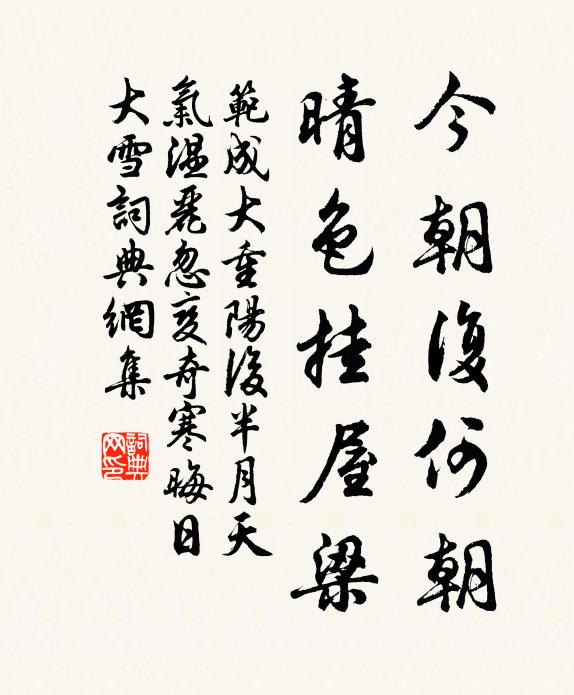 今朝復何朝
晴色挂屋梁
範成大重陽後半月天
氣温麗忽變奇寒晦日
大雪詞典網集
詞典网印